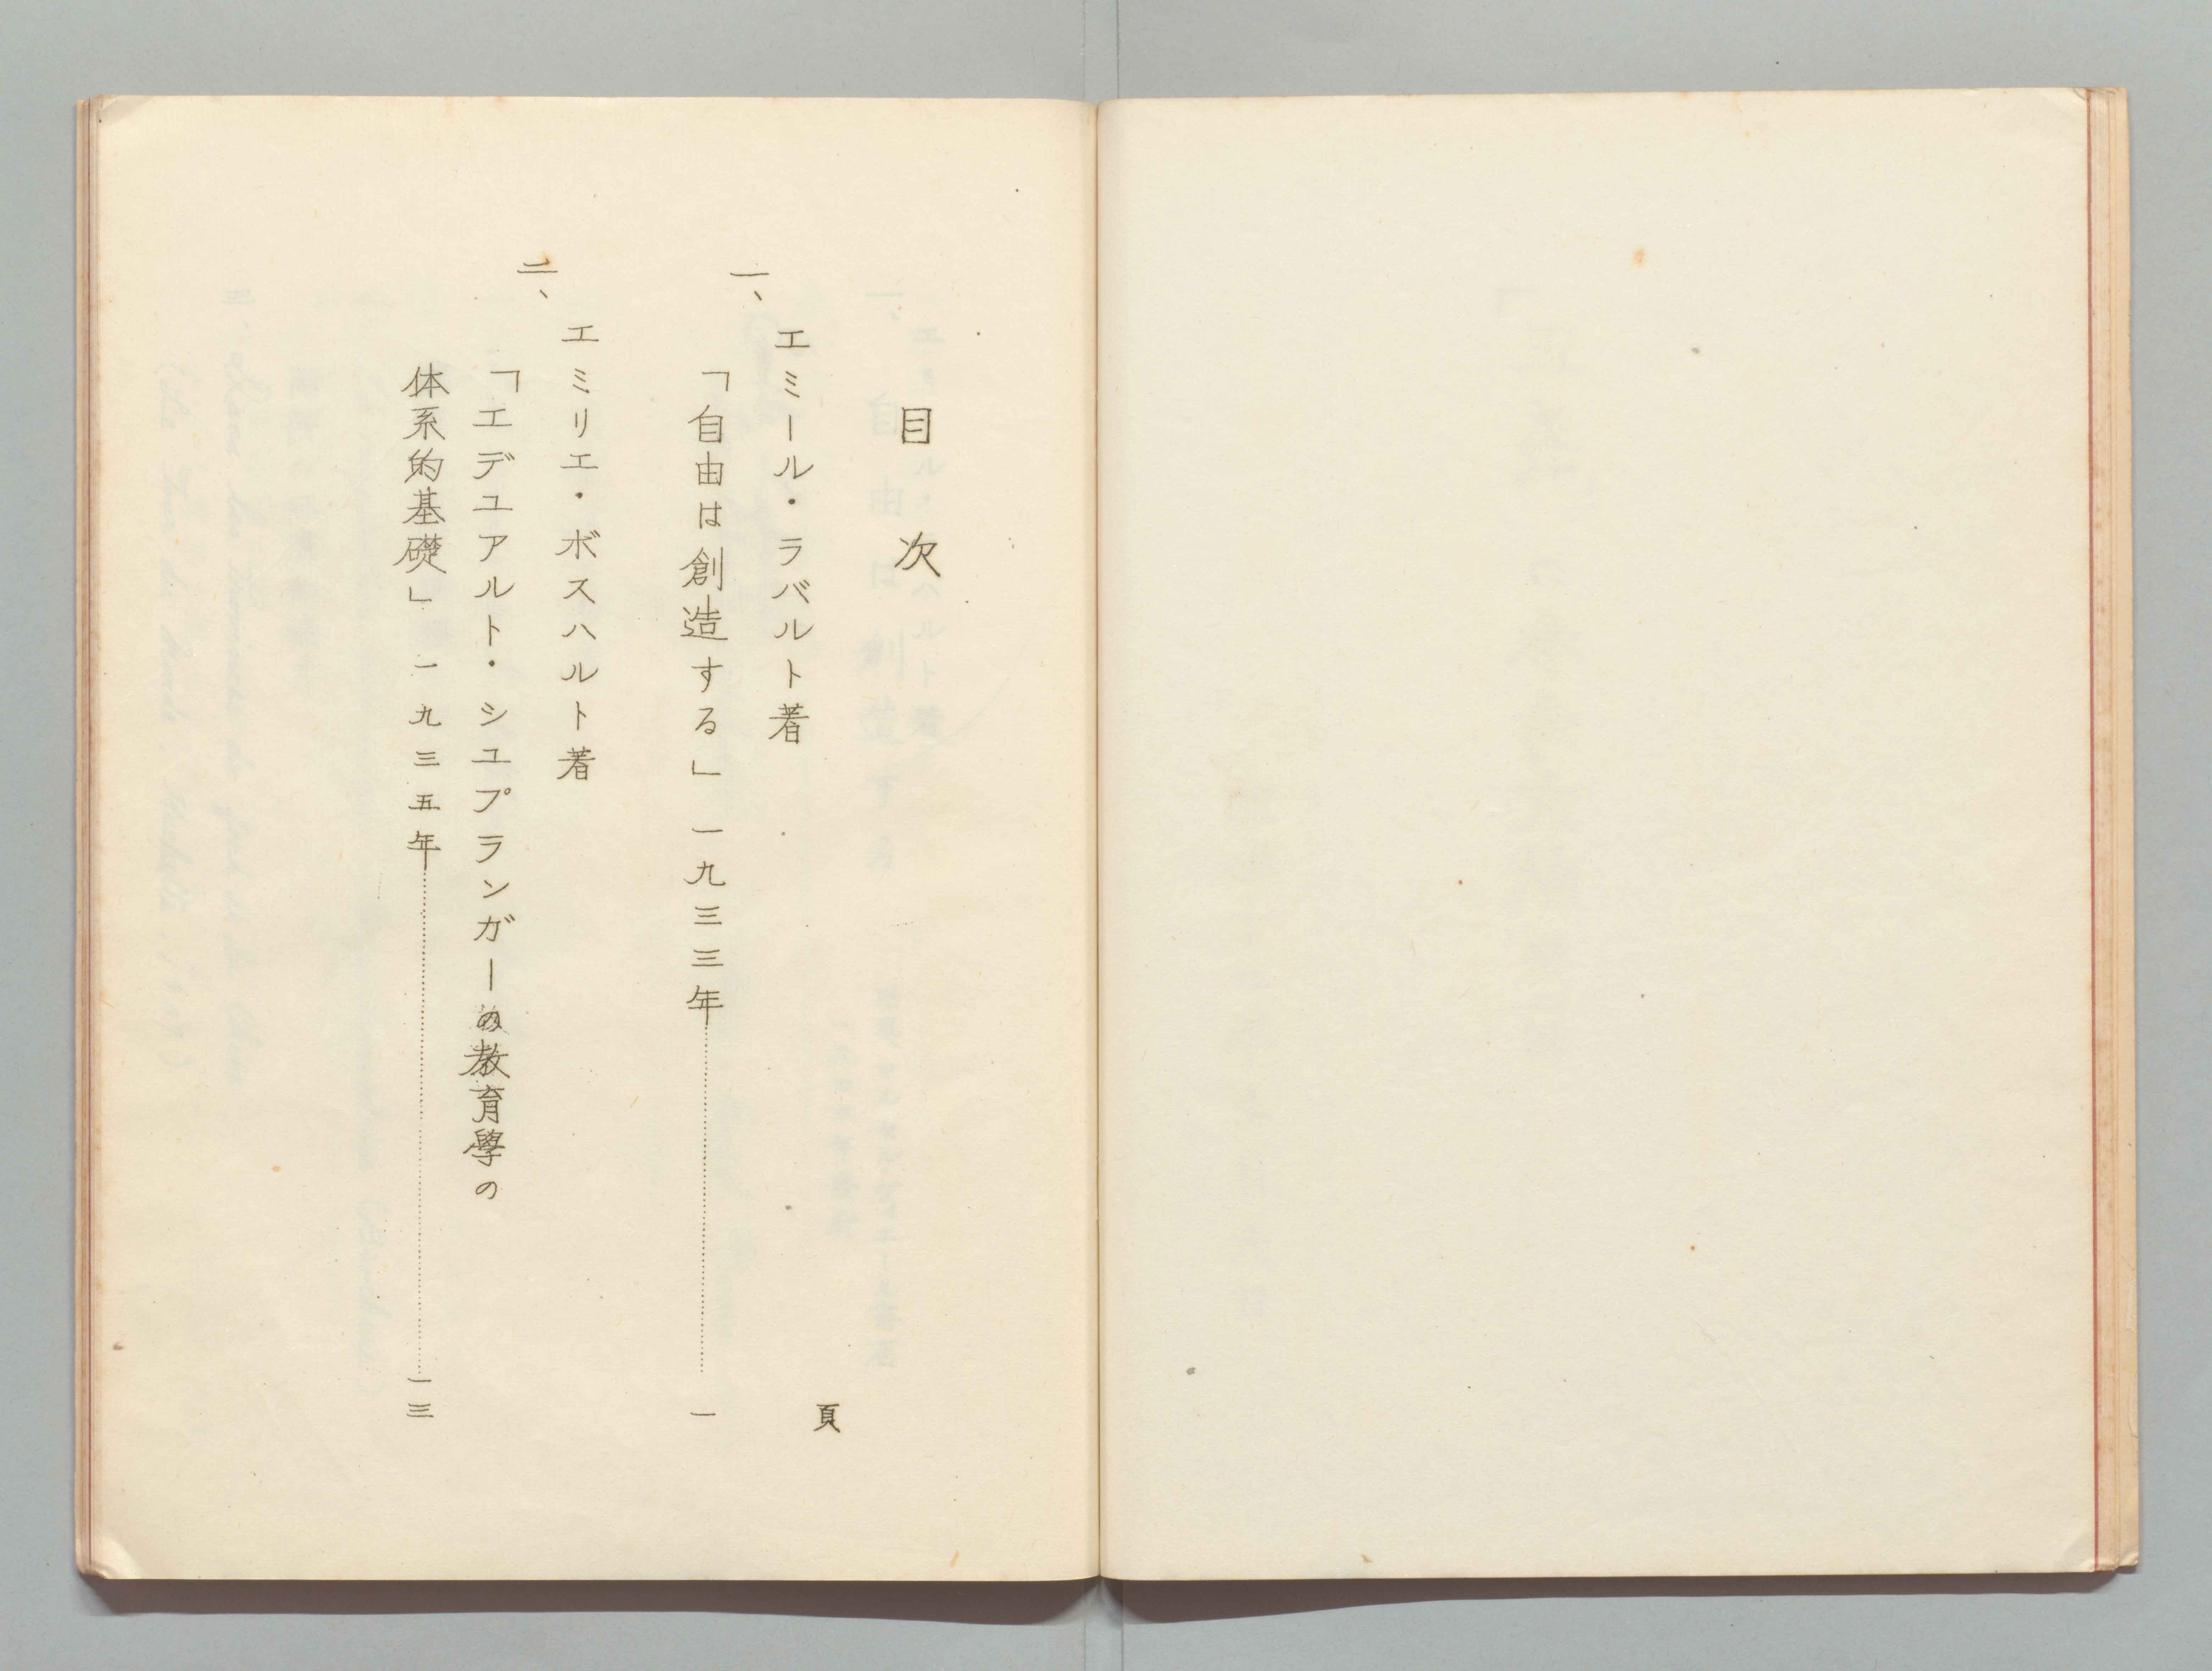 目次
頁
一、
エミール・ラバルト著
「自由は創造する」一九三三年 一
二、
エミリエ・ボスハルト著
「エデュアルト・シュプランガーの教育學の
体系的基礎」一九三五年 一三